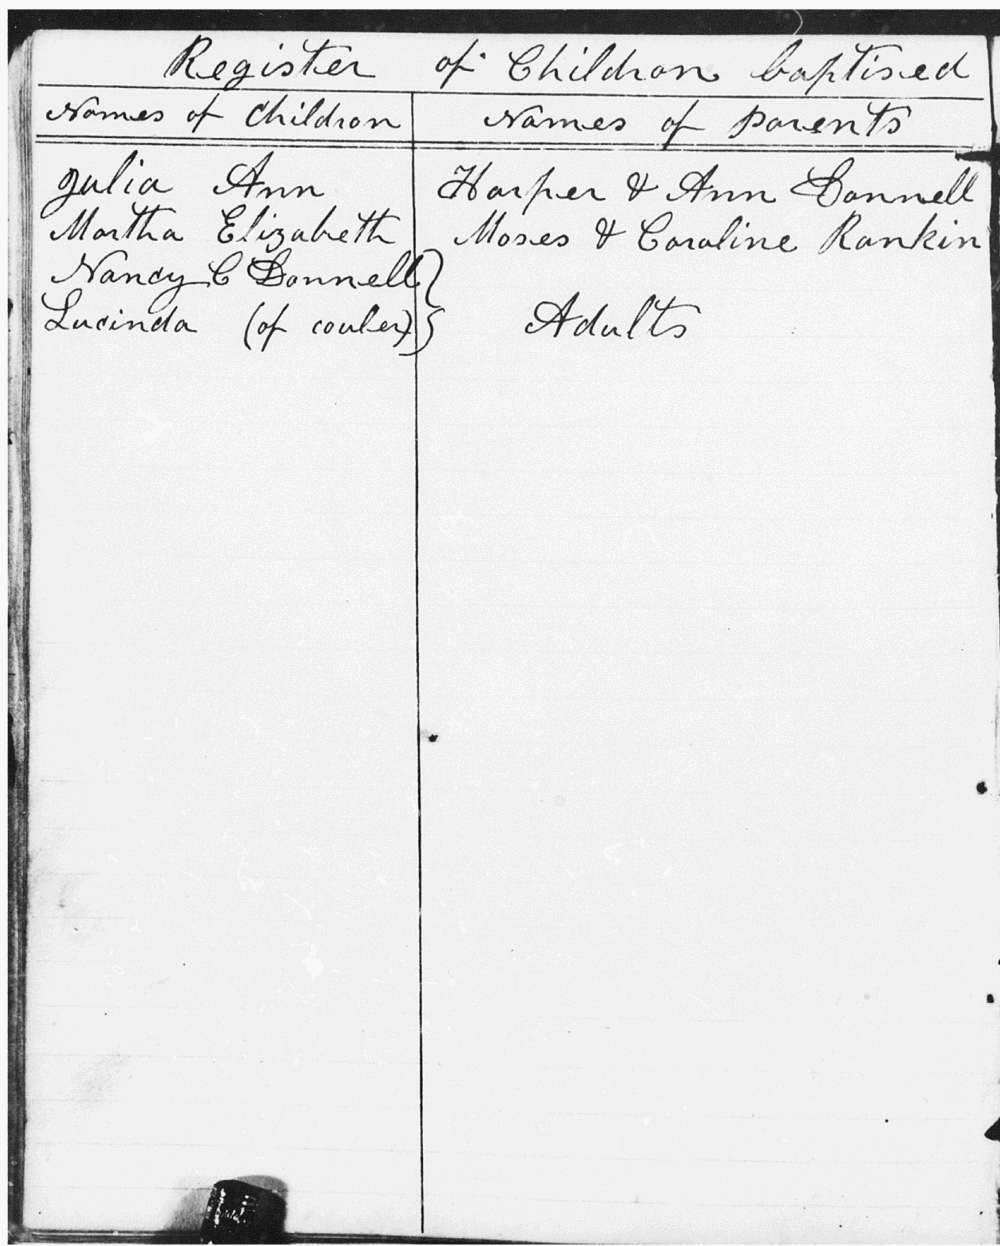 Register of Children baptised
Names of Children Names of Parents
Julia Ann Harper & Ann Donnell
Martha Elizabeth Moses & Caroline Rankin
Nancy C Donnell
Lucinda (of couler) Adults